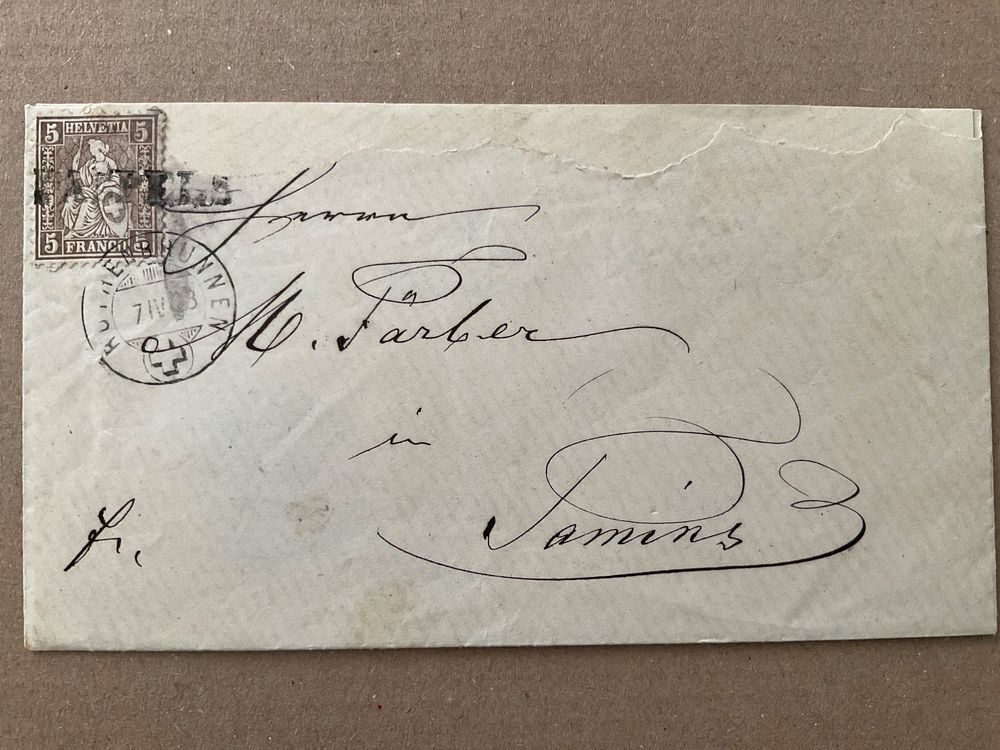 5 HELVETIA 5
5 FRANCO 5
ROTHENBRUNNEN
7 IV
Herrn
M. Färber
in
Tamins
fr.